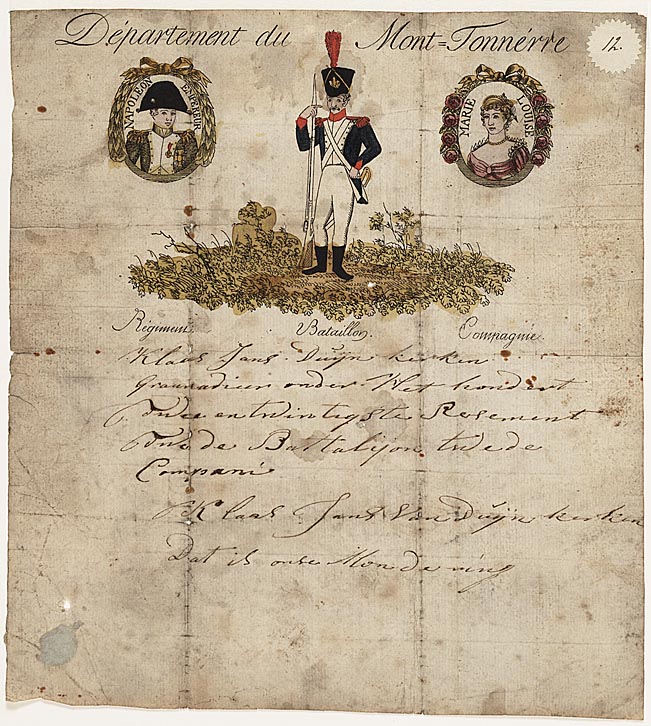 Département du Mont=Tonnérre
12.
NAPOLÉON EMPEREUR
MARIE LOUISE
Régiment Bataillon Compagnie
Klaas Jans Duijn kerken
Grannadier onder Het hondert
twee en twintigste Resement
de Battalijon twede
Compani
Klaas Jans Van Duijn kerken
Dat is onse Mondering